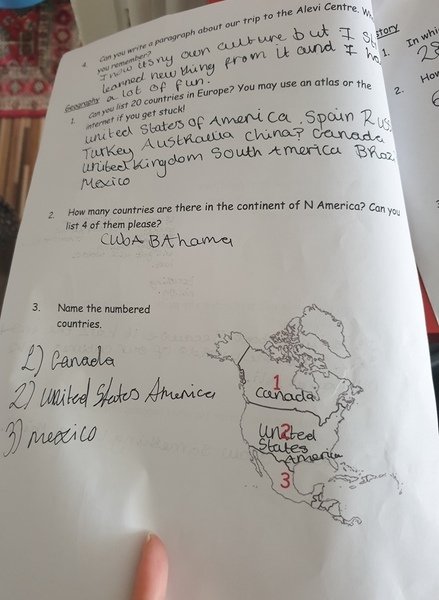 4. Can you write a paragraph about our trip to the Alevi Centre.
you remember?
I now its my own culture but I
learned new thing from it and I
a lot of fun.
Geography
1. Can you list 20 countries in Europe? You may use an atlas or the
internet if you get stuck!
United States of America. Spain
Turkey Australia China? Canada
United Kingdom South America
Mexico
2. How many countries are there in the continent of N America? Can you
list 4 of them please?
CUbA BAhama
3. Name the numbered
countries.
1) Canada
2) United States America
3) mexico
1
Canada
2
United
States
America
3
story
1. In whi
2.